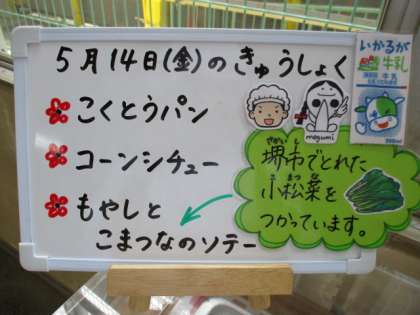 5月14日(金)のきゅうしょく
こくとうパン
コーンシチュー
もやしと
こまつなのソテー
megumi
いかるが
牛乳
牛乳
さかいし
堺市でとれた
こまつな
小松菜を
つかっています。